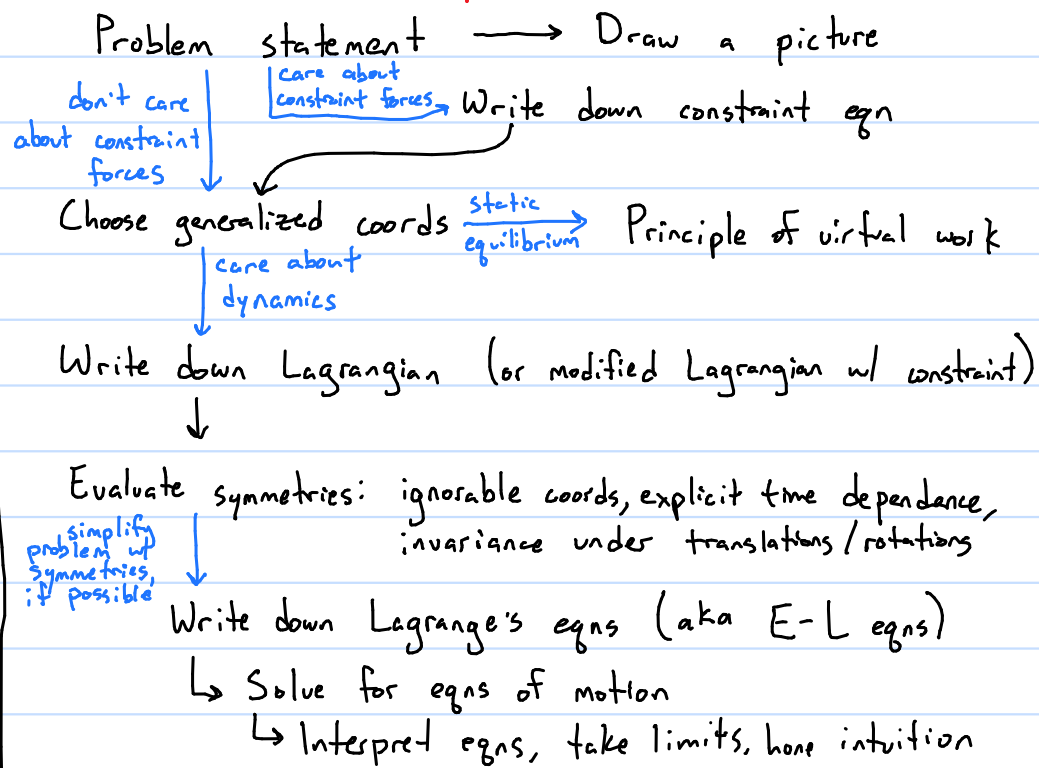 Problem statement → Draw a picture
care about
constraint forces
don't care
about constraint
forces
Write down constraint eqn
Choose generalized coords
static
equilibrium
Principle of virtual work
care about
dynamics
Write down Lagrangian (or modified Lagrangian w/ constraint)
Evaluate symmetries: ignorable coords, explicit time dependance,
invariance under translations/rotations
simplify
problem w/
symmetries,
if possible
Write down Lagrange's eqns (aka E-L eqns)
↳ Solve for eqns of motion
↳ Interpret eqns, take limits, hone intuition